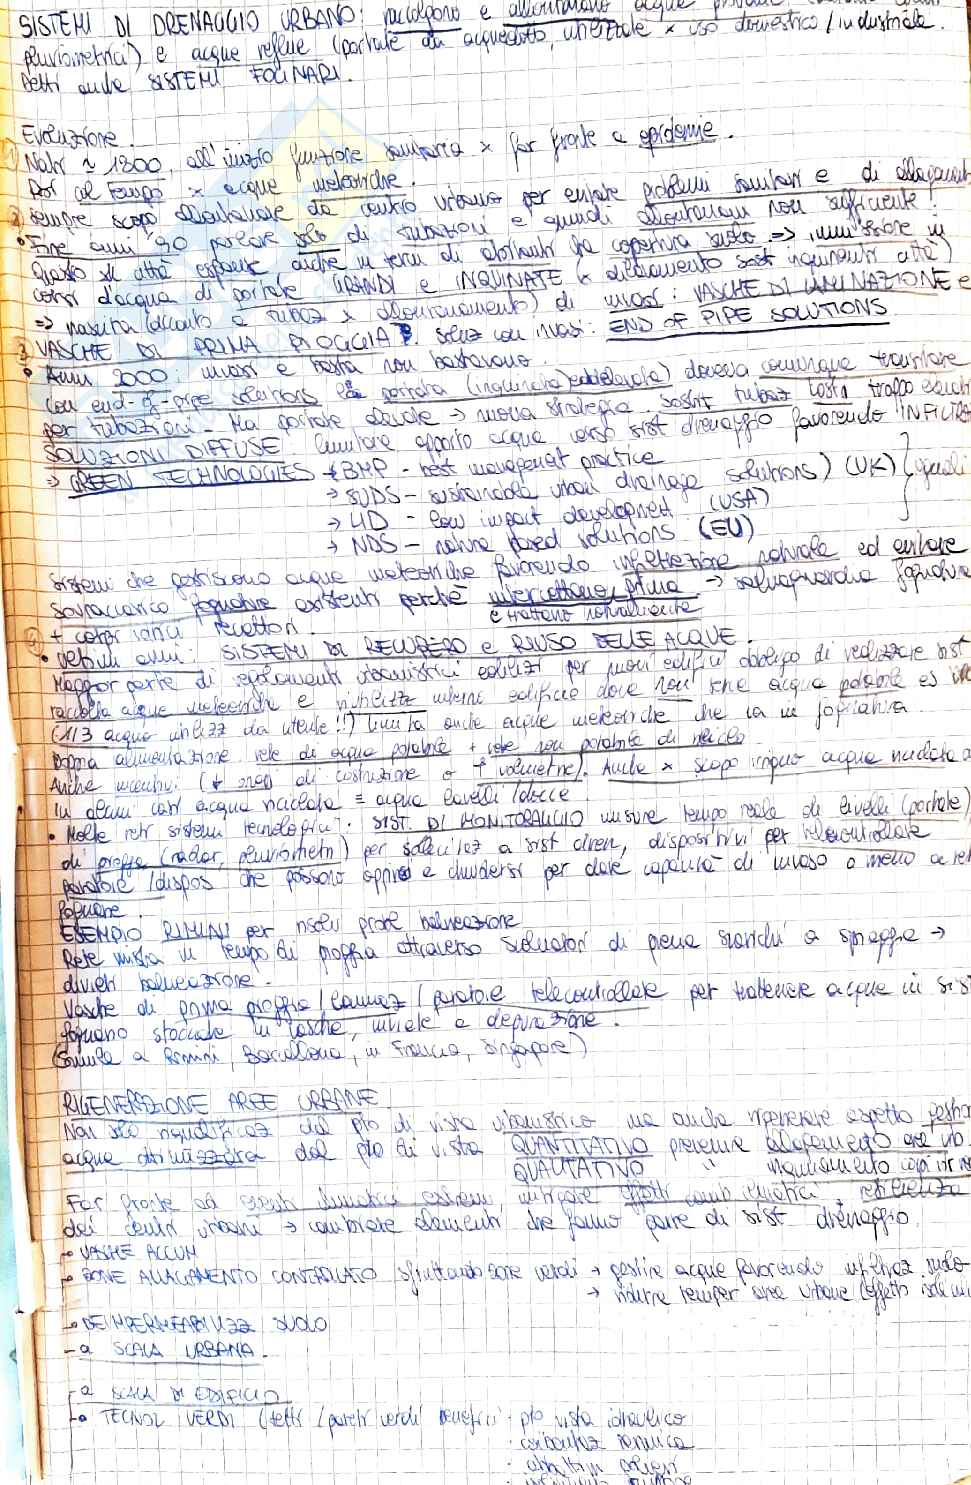 SISTEMI DI DRENAGGIO URBANO: raccolgono e allontanano acque
pluviometrici) e acque reflue (portate da acquedotto, utenze x uso domestico / industriale.
Detti anche SISTEMI FOGNARI.
Evoluzione
1) Nati ≃ 1800, all'inizio funzione sanitaria x far fronte a epidemie.
Poi al tempo x acque meteoriche.
2) Sempre scopo allontanare da centro urbano per evitare problemi sanitari e di allagamenti
• Fine anni '90 parlare solo di tubazioni e quindi allontanam non sufficiente!
Questo xk città espanse, anche in term di abitanti ha coperto suolo => immissione in
corsi d'acqua di portate GRANDI e INQUINATE (x dilavamento inquinanti città)
=> nascita (accanto a tubaz x allontanamento) di invasi: VASCHE DI LAMINAZIONE e
VASCHE DI PRIMA PIOGGIA. Soluz con invasi: END OF PIPE SOLUTIONS.
3) • Anni 2000: invasi e basta non bastavano.
Con end-of-pipe solutions portata (inquinata) doveva comunque transitare
per tubazioni. Ma portate elevate → nuova strategia. Sostit tubaz costa troppo
SOLUZIONI DIFFUSE. Limitare apporto acqua verso sist drenaggio favorendo INFILTRAZ
=> GREEN TECHNOLOGIES → BMP - best management practice
→ SUDS - sustainable urban drainage solutions) (UK)
→ LID - low impact development (USA)
→ NBS - nature based solutions (EU)
Sistemi che gestiscono acque meteoriche favorendo infiltrazione naturale ed evitare
sovraccarico fognature esistenti perchè intercettano prima → salvaguardia fognature
e trattano naturalmente
+ corpi idrici recettori.
4) • Ultimi anni: SISTEMI DI RECUPERO e RIUSO DELLE ACQUE.
Maggior parte di regolamenti urbanistici edilizi per nuovi edifici obbligo di realizzare sist
raccolta acque meteoriche e riutilizz interni edificio dove non serve acqua potabile es
(1/3 acqua utilizz da utente!!) Limita anche acque meteoriche che va in fognatura.
Doppia alimentazione rete di acqua potabile + rete non potabile di riciclo
Anche incentivi (↓ oneri di costruzione o + volumetrie). Anche x scopo irriguo acqua riciclata
In alcuni casi acqua riciclata = acqua lavelli / docce
• Molte reti sistemi tecnologici: SIST. DI MONITORAGGIO misure tempo reale di livelli (portate),
di pioggia (radar, pluviometri) per sollecitaz a sist dren, dispositivi per telecontrollate
paratoie / dispos che possono aprirsi e chiudersi per dare capacità di invaso o meno a reti
fognarie.
ESEMPIO RIMINI per risolv probl balneazione
Rete mista in tempo di pioggia attraverso scolmatori di piena scarichi a spiaggia →
divieti balneazione.
Vasche di prima pioggia / laminaz / paratoie telecontrollate per trattenere acque in sist
fognario stoccate in vasche, inviate a depurazione.
(Simile a Rimini, Barcellona, in Francia, Singapore)
RIGENERAZIONE AREE URBANE
Non solo riqualificaz dal pto di vista urbanistico ma anche rigenerare aspetto gestione
acqua dal pto di vista QUANTITATIVO prevenire allagamento aree urb.
QUALITATIVO " inquinamento corpi idrici
Far fronte ad eventi climatici estremi, mitigare effetti camb climatici, resilienza
dei centri urbani → cambiare elementi che fanno parte di sist drenaggio.
→ VASCHE ACCUM
→ ZONE ALLAGAMENTO CONTROLLATO sfruttando zone verdi → gestire acque favorendo infiltraz suolo
→ ridurre temper aree urbane (effetto isole
→ DEIMPERMEABILIZZ SUOLO
- a SCALA URBANA.
- a SCALA DI EDIFICIO
→ TECNOL VERDI (tetti / pareti verdi benefici · pto vista idraulico
· coibentaz termica